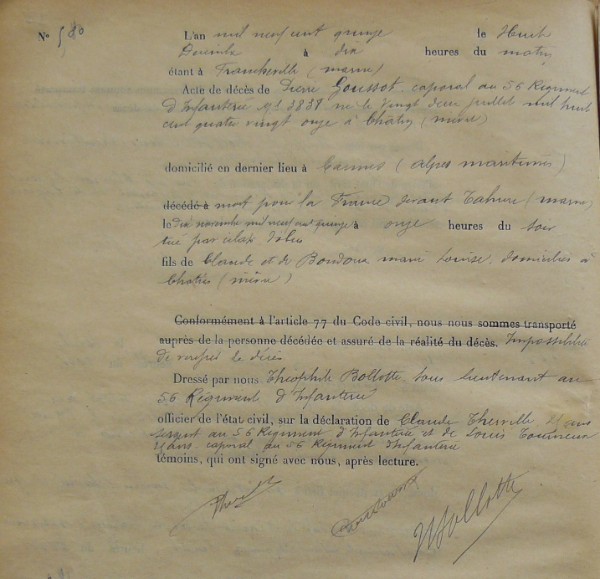 N° 580
L'an mil neuf cent quinze le Huit
Décembre à dix heures du matin
étant à Francheville (marne)
Acte de décès de Pierre Goussot, caporal au 56 Régiment
d'Infanterie né le vingt deux juillet mil huit
cent quatre vingt onze à (nièvre)
domicilié en dernier lieu à Cannes (alpes maritimes)
décédé à mort pour la France devant Tahure (marne)
le dix novembre mil neuf cent quinze à onze heures du soir
tué par éclat d'obus
fils de Claude et de marie Louise, domiciliés à
(nièvre)
Conformément à l'article 77 du Code civil, nous nous sommes transporté
auprès de la personne décédée et assuré de la réalité du décès. Impossibilité
de vérifier le décès
Dressé par nous Théophile Bollotte, sous lieutenant au
56 Régiment d'Infanterie
officier de l'état civil, sur la déclaration de Claude ans
sergent au 56 Régiment d'Infanterie et de Louis
ans caporal au 56 Régiment Infanterie
témoins, qui ont signé avec nous, après lecture.
Bollotte